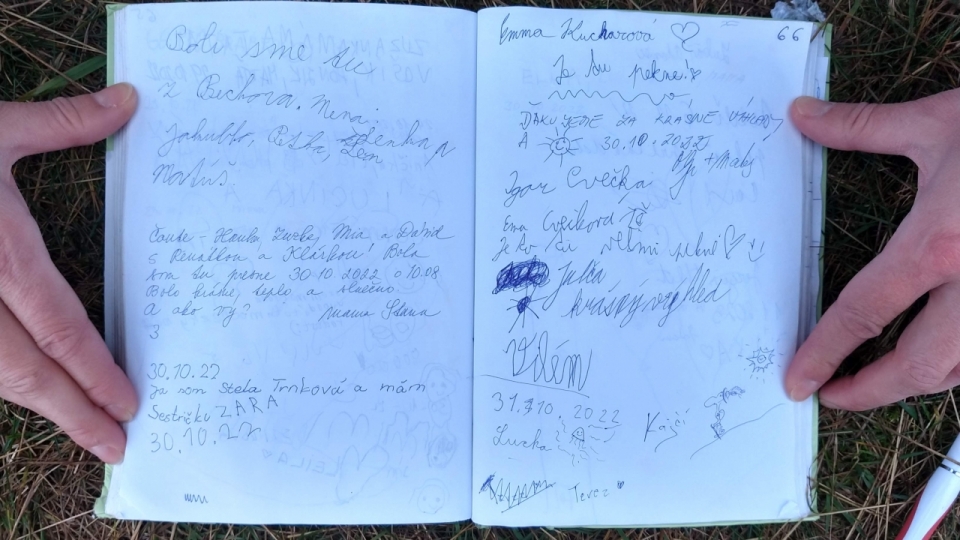 Boli sme tu
z Bechova. Nena,
Jakubko,
Matúš.
Čaute - Hanka, Zuzka, Mia a Dávid
s Renátkou a Klárkou! Bola
som tu pekne 30 10 2022 o 10.08
Bolo krásne, teplo a slnečno
A ako vy? mama Stana
3
30.10.22
Ja som Stela Trnková a mám
Sestričku ZARA
30.10.22
Emma Kucharová
66
Je tu pekne!
ĎAKUJEME ZA KRÁSNE VÝHĽADY
A 30.10.2022
Igor Cvečka
Ema
Je tu veľmi pekne
Julka
krásny výhľad
Vilém
31.10.2022
Lucka
Terez